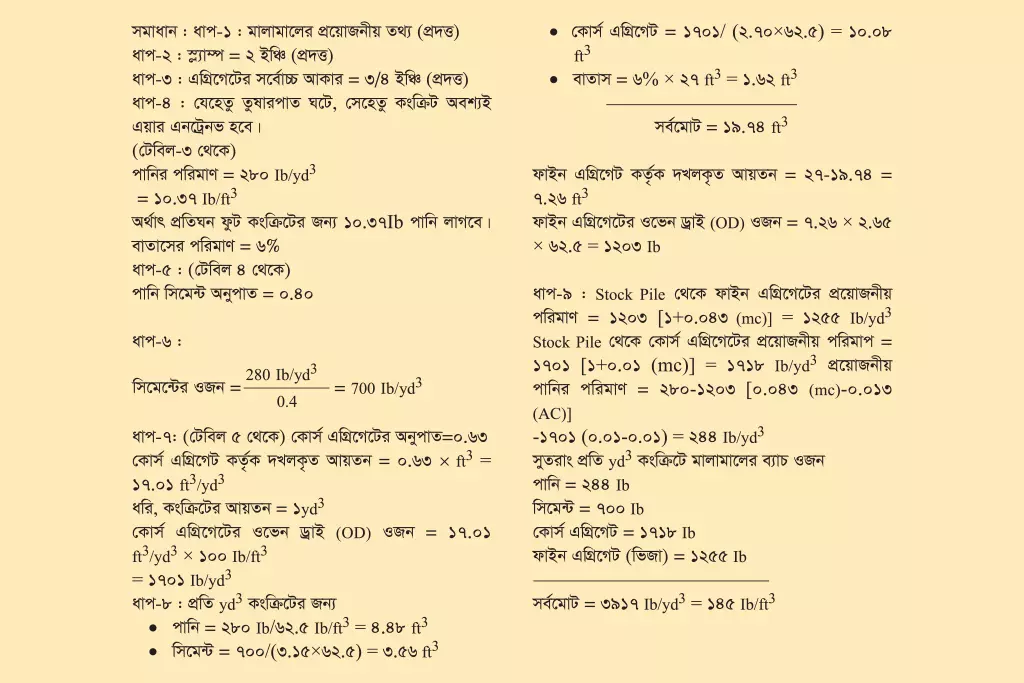 সমাধান : ধাপ-১ : মালামালের প্রয়োজনীয় তথ্য (প্রদত্ত)
ধাপ-২ : স্ল্যাম্প = ২ ইঞ্চি (প্রদত্ত)
ধাপ-৩ : এগ্রিগেটের সর্বোচ্চ আকার = ৩/৪ ইঞ্চি (প্রদত্ত)
ধাপ-৪ : যেহেতু তুষারপাত ঘটে, সেহেতু কংক্রিট অবশ্যই
এয়ার এনট্রেনভ হবে।
(টেবিল-৩ থেকে)
পানির পরিমাণ = ২৮০ Ib/yd³
= ১০.৩৭ Ib/ft³
অর্থাৎ প্রতিঘন ফুট কংক্রিটের জন্য ১০.৩৭Ib পানি লাগবে।
বাতাসের পরিমাণ = ৬%
ধাপ-৫ : (টেবিল ৪ থেকে)
পানি সিমেন্ট অনুপাত = ০.৪০
ধাপ-৬ :
সিমেন্টের ওজন = 280 Ib/yd³ / 0.4 = 700 Ib/yd³
ধাপ-৭: (টেবিল ৫ থেকে) কোর্স এগ্রিগেটের অনুপাত=০.৬৩
কোর্স এগ্রিগেট কর্তৃক দখলকৃত আয়তন = ০.৬৩ × ft³ =
১৭.০১ ft³/yd³
ধরি, কংক্রিটের আয়তন = ১yd³
কোর্স এগ্রিগেটের ওভেন ড্রাই (OD) ওজন = ১৭.০১
ft³/yd³ × ১০০ Ib/ft³
= ১৭০১ Ib/yd³
ধাপ-৮ : প্রতি yd³ কংক্রিটের জন্য
• পানি = ২৮০ Ib/৬২.৫ Ib/ft³ = ৪.৪৮ ft³
• সিমেন্ট = ৭০০/(৩.১৫×৬২.৫) = ৩.৫৬ ft³
• কোর্স এগ্রিগেট = ১৭০১/ (২.৭০×৬২.৫) = ১০.০৮
ft³
• বাতাস = ৬% × ২৭ ft³ = ১.৬২ ft³
সর্বমোট = ১৯.৭৪ ft³
ফাইন এগ্রিগেট কর্তৃক দখলকৃত আয়তন = ২৭-১৯.৭৪ =
৭.২৬ ft³
ফাইন এগ্রিগেটের ওভেন ড্রাই (OD) ওজন = ৭.২৬ × ২.৬৫
× ৬২.৫ = ১২০৩ Ib
ধাপ-৯ : Stock Pile থেকে ফাইন এগ্রিগেটের প্রয়োজনীয়
পরিমাণ = ১২০৩ [১+০.০৪৩ (mc)] = ১২৫৫ Ib/yd³
Stock Pile থেকে কোর্স এগ্রিগেটের প্রয়োজনীয় পরিমাপ =
১৭০১ [১+০.০১ (mc)] = ১৭১৮ Ib/yd³ প্রয়োজনীয়
পানির পরিমাণ = ২৮০-১২০৩ [০.০৪৩ (mc)-০.০১৩
(AC)]
-১৭০১ (০.০১-০.০১) = ২৪৪ Ib/yd³
সুতরাং প্রতি yd³ কংক্রিটে মালামালের ব্যাচ ওজন
পানি = ২৪৪ Ib
সিমেন্ট = ৭০০ Ib
কোর্স এগ্রিগেট = ১৭১৮ Ib
ফাইন এগ্রিগেট (ভিজা) = ১২৫৫ Ib
সর্বমোট = ৩৯১৭ Ib/yd³ = ১৪৫ Ib/ft³